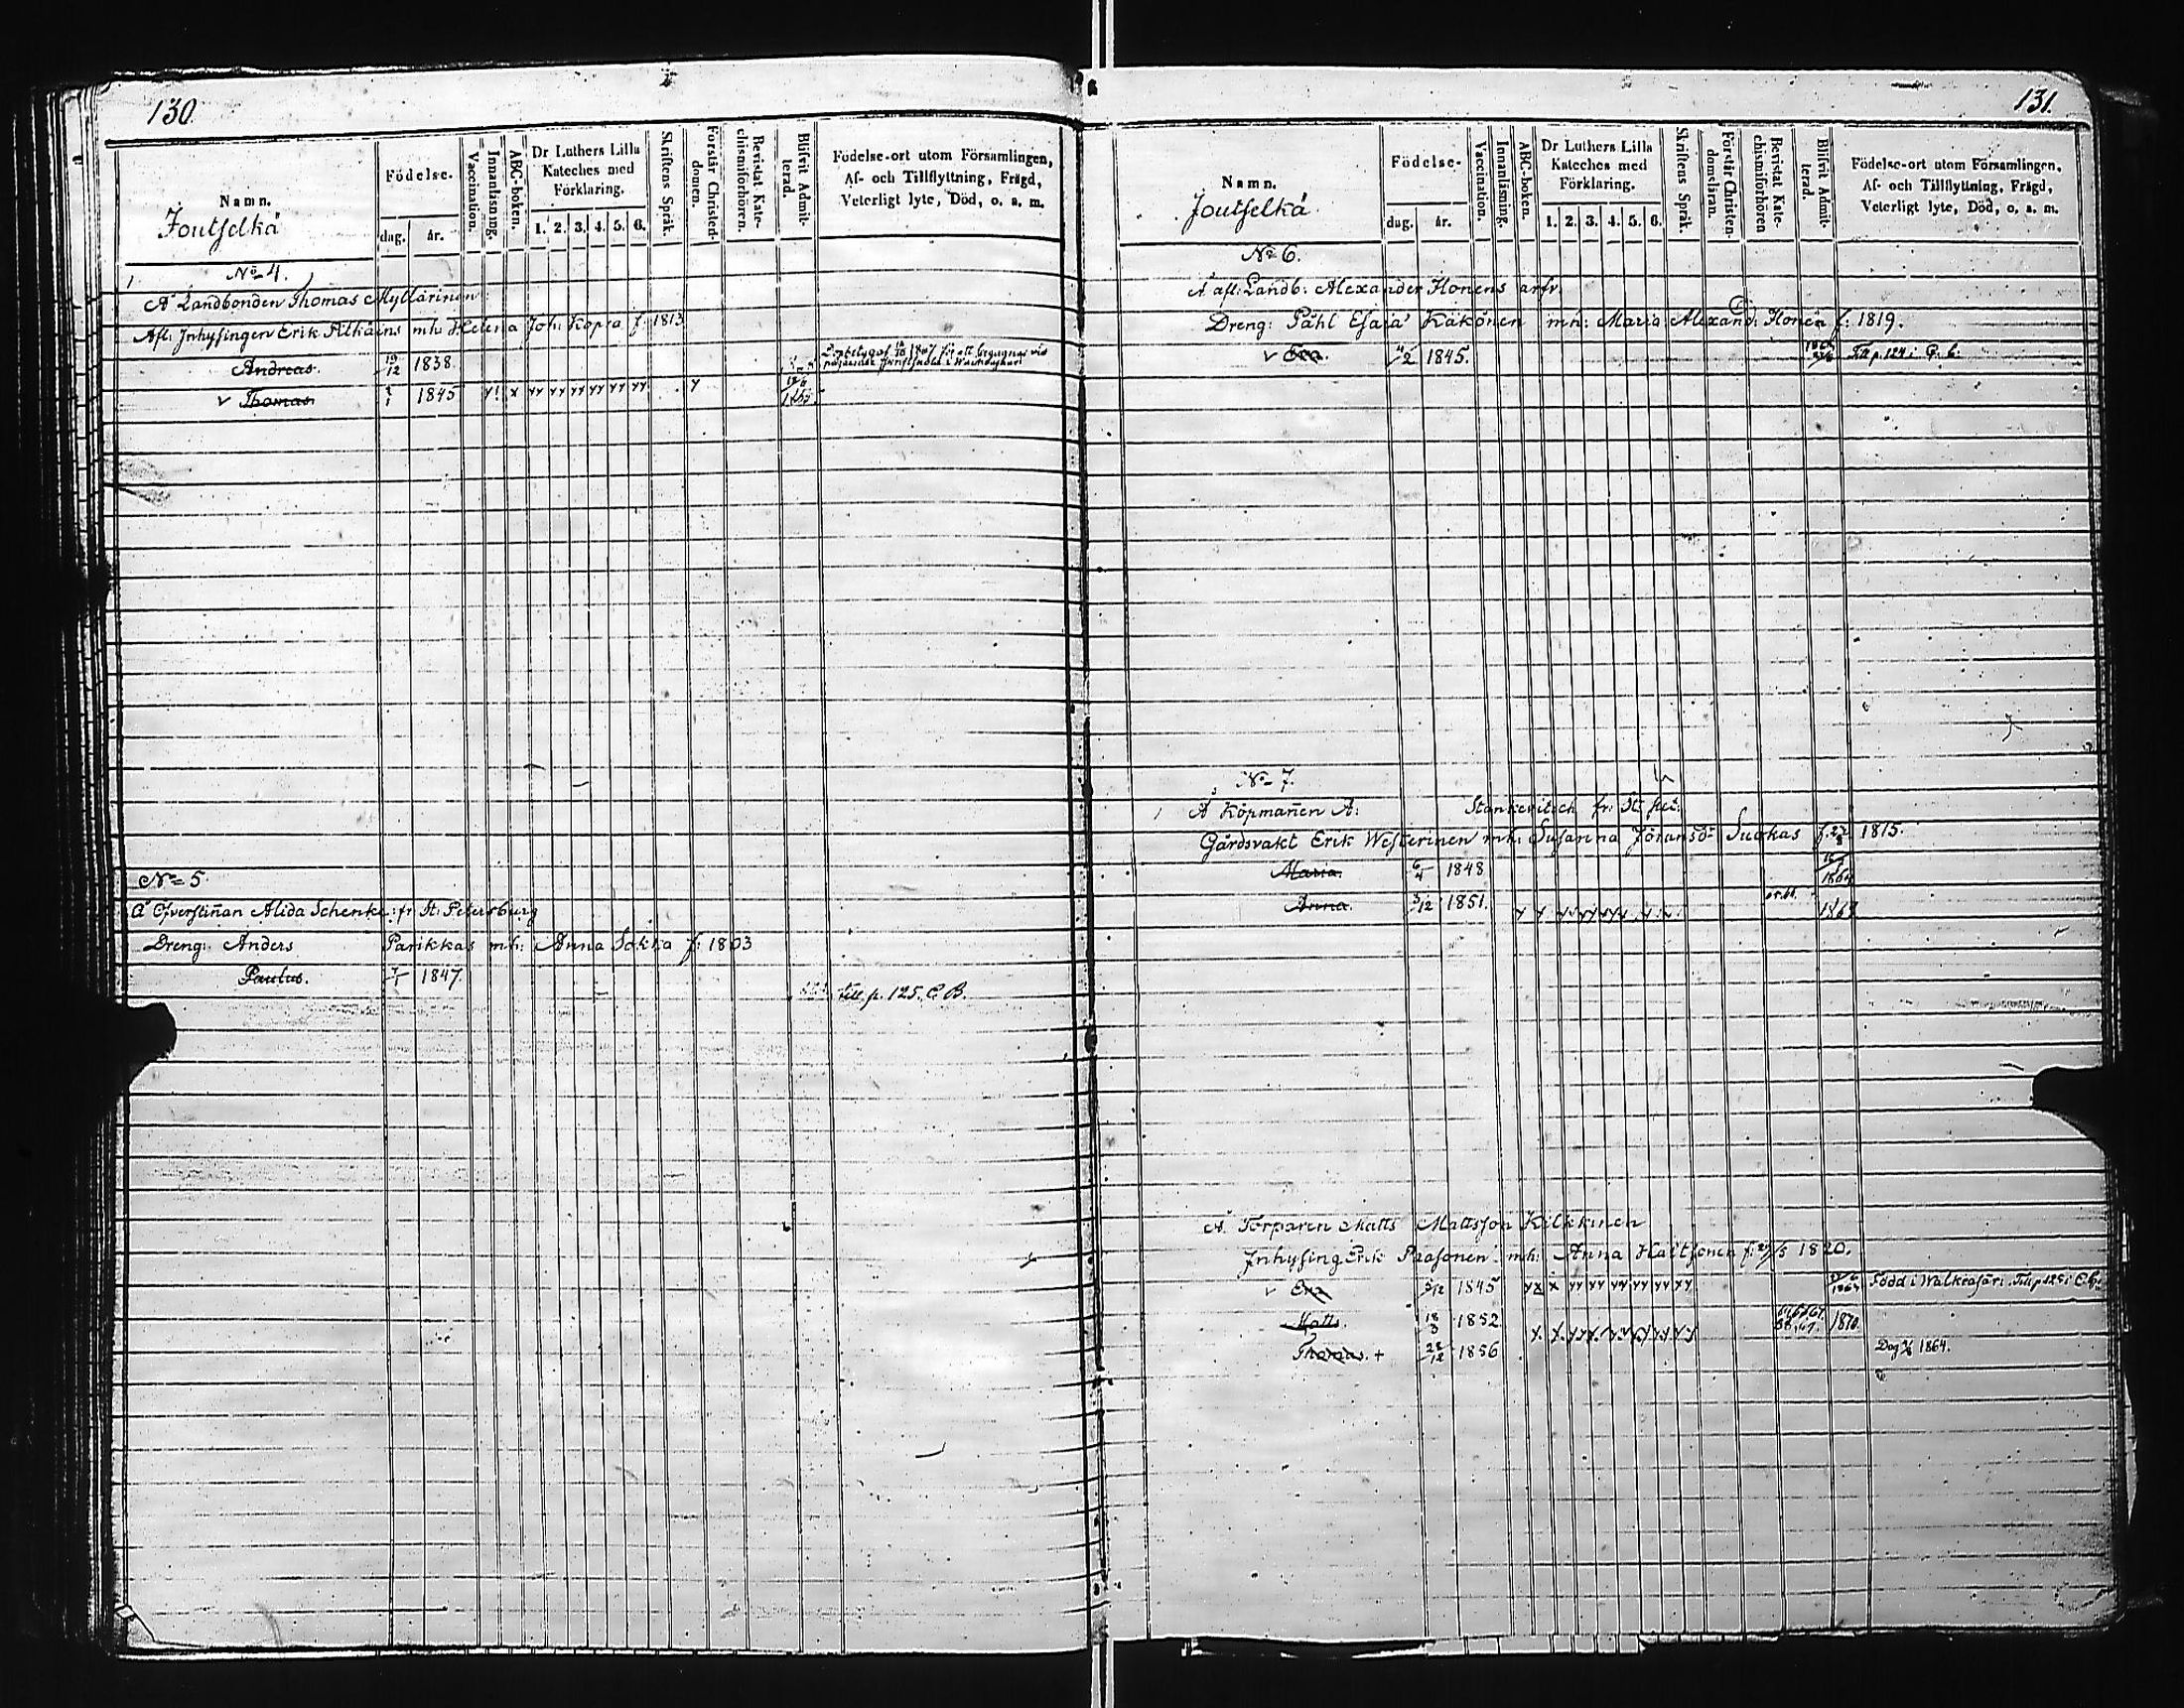 130.
Namn.
Joutselkä
Födelse.
dag. år.
Vaccination.
Innanläsning.
ABC-boken.
Dr Luthers Lilla Kateches med Förklaring.
1. 2. 3. 4. 5. 6.
Skriftens Språk.
Förstår Christendomen.
Bevistat Katechismiförhören.
Blifvit Admitterad.
Födelse-ort utom Församlingen,
Af- och Tillflyttning, Frägd,
Veterligt lyte, Död, o. s. m.
No 4.
Å Landbonden Thomas Myllärinen
Afl: Inhysingen Erik mh: Helena Joh: Kopra f. 1813
Andreas. 19/12 1838.
v Thomas. 1845 y! x yy yy yy yy yy yy y
No 5.
Å Öfverstinnan Alida Schenke: fr. St: Petersburg
Dreng: Anders Parikkas mh: Anna Sokka f: 1803
Paulus. 1847.
till p. 125. C. B.
131.
Namn.
Joutselkä
Födelse-
dag. år.
Vaccination.
Innanläsning.
ABC-boken.
Dr Luthers Lilla Kateches med Förklaring.
1. 2. 3. 4. 5. 6.
Skriftens Språk.
Förstår Christendomsläran.
Bevistat Katechismiförhören
Blifvit Admitterad.
Födelse-ort utom Församlingen,
Af- och Tillflyttning, Frägd,
Veterligt lyte, Död, o. s. m.
No 6.
Å afl: Landb: Alexander Ilonens arfv.
Dreng: Påhl Esaia Käkönen mh: Maria Alexand: Ilonen f: 1819.
v Eva. 4/2 1845. Till p. 124 i C. b.
No 7.
Å Köpmannen A: Stankevitsch fr: St: pet:
Gårdsvakt Erik Westerinen mh: Susanna Jöransdr Suokas f. 1815.
Maria. 6/4 1848 1864
Anna. 3/12 1851.
Å Torparen Matts Mattsson Kilkkinen
Inhysing Erik Paasonen mh: Anna Haltsonen f: 27/5 1820.
v Eva 3/12 1845 Född i Walkeasari Till p 125 i C. b.
Matts. 1852 1870.
Thomas. + 28/12 1856 Dog 1864.